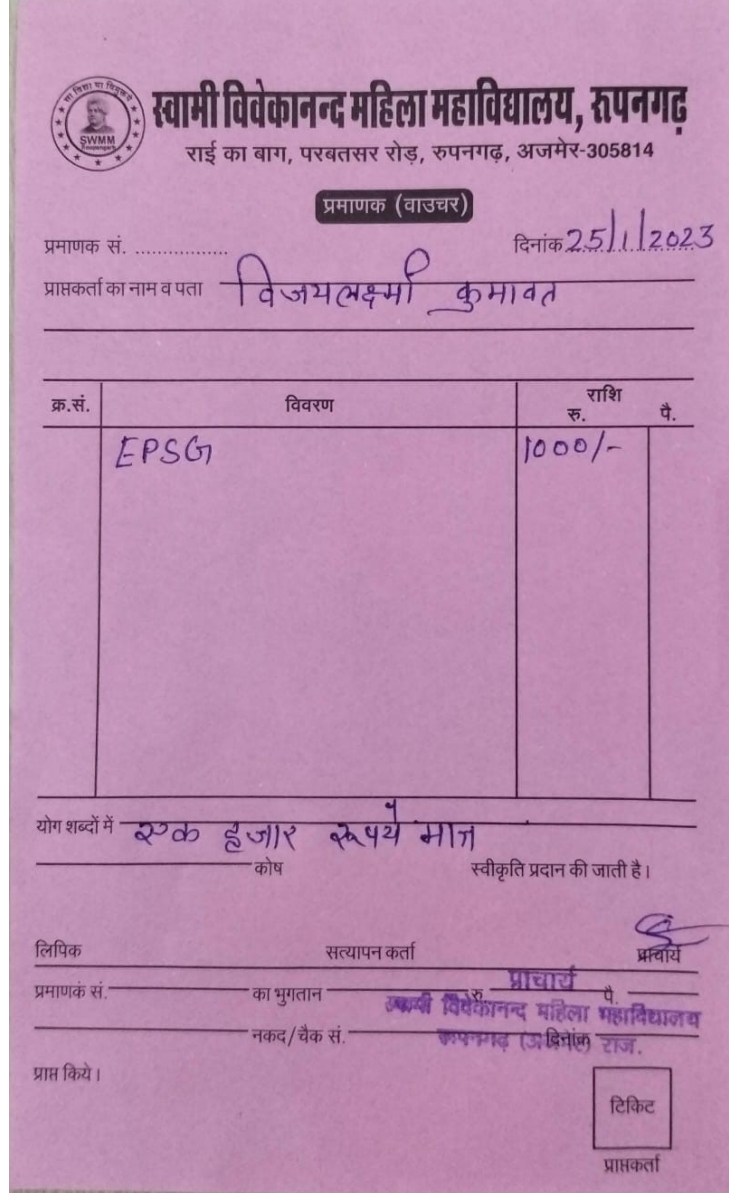 सा विद्या या विमुक्तये
SWMM
स्वामी विवेकानन्द महिला महाविद्यालय, रूपनगढ़
राई का बाग, परबतसर रोड़, रुपनगढ़, अजमेर-305814
प्रमाणक (वाउचर)
प्रमाणक सं. ................ दिनांक 25/1/2023
प्राप्तकर्ता का नाम व पता विजयलक्ष्मी कुमावत
क्र.सं. विवरण राशि
रु. पै.
EPSG 1000/-
योग शब्दों में एक हजार रूपये मात्र
कोष स्वीकृति प्रदान की जाती है।
लिपिक सत्यापन कर्ता प्राचार्य
प्राचार्य
प्रमाणक सं. का भुगतान रु. पै.
स्वामी विवेकानन्द महिला महाविद्यालय
नकद/चैक सं. दिनांक
रूपनगढ़ (अजमेर) राज.
प्राप्त किये।
टिकिट
प्राप्तकर्ता